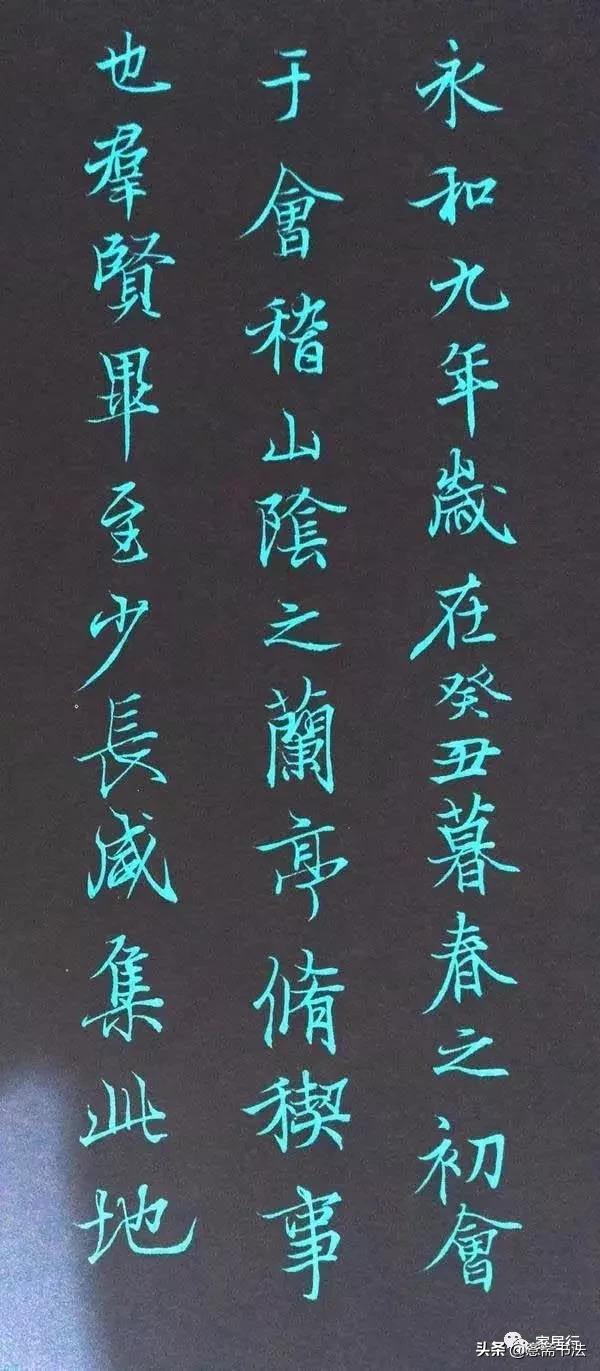 永和九年歲在癸丑暮春之初會
于會稽山陰之蘭亭脩稧事
也羣賢畢至少長咸集此地
家居行
头条 @斋书法